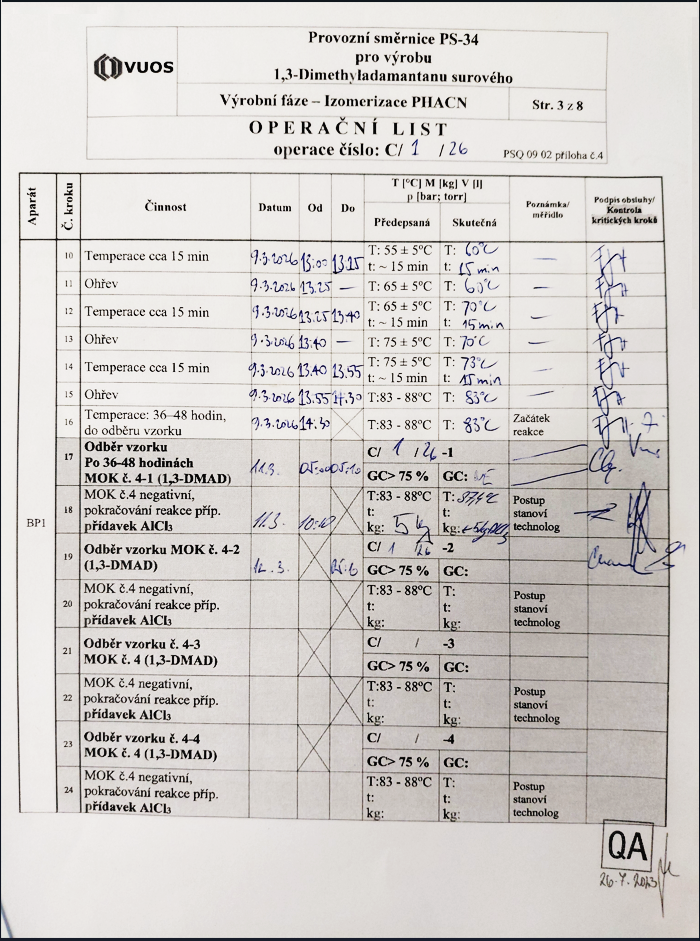 VUOS
Provozní směrnice PS-34
pro výrobu
1,3-Dimethyladamantanu surového
Výrobní fáze – Izomerizace PHACN
Str. 3 z 8
OPERAČNÍ LIST
operace číslo: C/ 1 / 26
PSQ 09 02 příloha č.4
Aparát
Č. kroku
Činnost
Datum
Od
Do
T [°C] M [kg] V [l]
p [bar; torr]
Předepsaná
Skutečná
Poznámka/
měřidlo
Podpis obsluhy/
Kontrola
kritických kroků
BP1
10 Temperace cca 15 min 9.3.2026 13:00 13.25 T: 55 ± 5°C T: 60°C —
t: ~ 15 min t: 15 min
11 Ohřev 9.3.2026 13.25 — T: 65 ± 5°C T: 60°C —
12 Temperace cca 15 min 9.3.2026 13.25 13.40 T: 65 ± 5°C T: 70°C —
t: ~ 15 min t: 15 min
13 Ohřev 9.3.2026 13:40 — T: 75 ± 5°C T: 70°C —
14 Temperace cca 15 min 9.3.2026 13.40 13.55 T: 75 ± 5°C T: 73°C —
t: ~ 15 min t: 15 min
15 Ohřev 9.3.2026 13.55 14.30 T:83 - 88°C T: 83°C —
16 Temperace: 36–48 hodin,
do odběru vzorku
9.3.2026 14:30 T:83 - 88°C T: 83°C
Začátek
reakce
17 Odběr vzorku
Po 36-48 hodinách
MOK č. 4-1 (1,3-DMAD)
11.3. 05:00 05:10
C/ 1 / 26 -1
GC> 75 % GC:
18 MOK č.4 negativní,
pokračování reakce příp.
přídavek AlCl3
11.3.
T:83 - 88°C T:
t: t:
kg: 5 kg kg:
Postup
stanoví
technolog
19 Odběr vzorku MOK č. 4-2
(1,3-DMAD)
12.3.
C/ 1 / 26 -2
GC> 75 % GC:
20 MOK č.4 negativní,
pokračování reakce příp.
přídavek AlCl3
T:83 - 88°C T:
t: t:
kg: kg:
Postup
stanoví
technolog
21 Odběr vzorku č. 4-3
MOK č. 4 (1,3-DMAD)
C/ / -3
GC> 75 % GC:
22 MOK č.4 negativní,
pokračování reakce příp.
přídavek AlCl3
T:83 - 88°C T:
t: t:
kg: kg:
Postup
stanoví
technolog
23 Odběr vzorku č. 4-4
MOK č. 4 (1,3-DMAD)
C/ / -4
GC> 75 % GC:
24 MOK č.4 negativní,
pokračování reakce příp.
přídavek AlCl3
T:83 - 88°C T:
t: t:
kg: kg:
Postup
stanoví
technolog
QA
26.7.2023